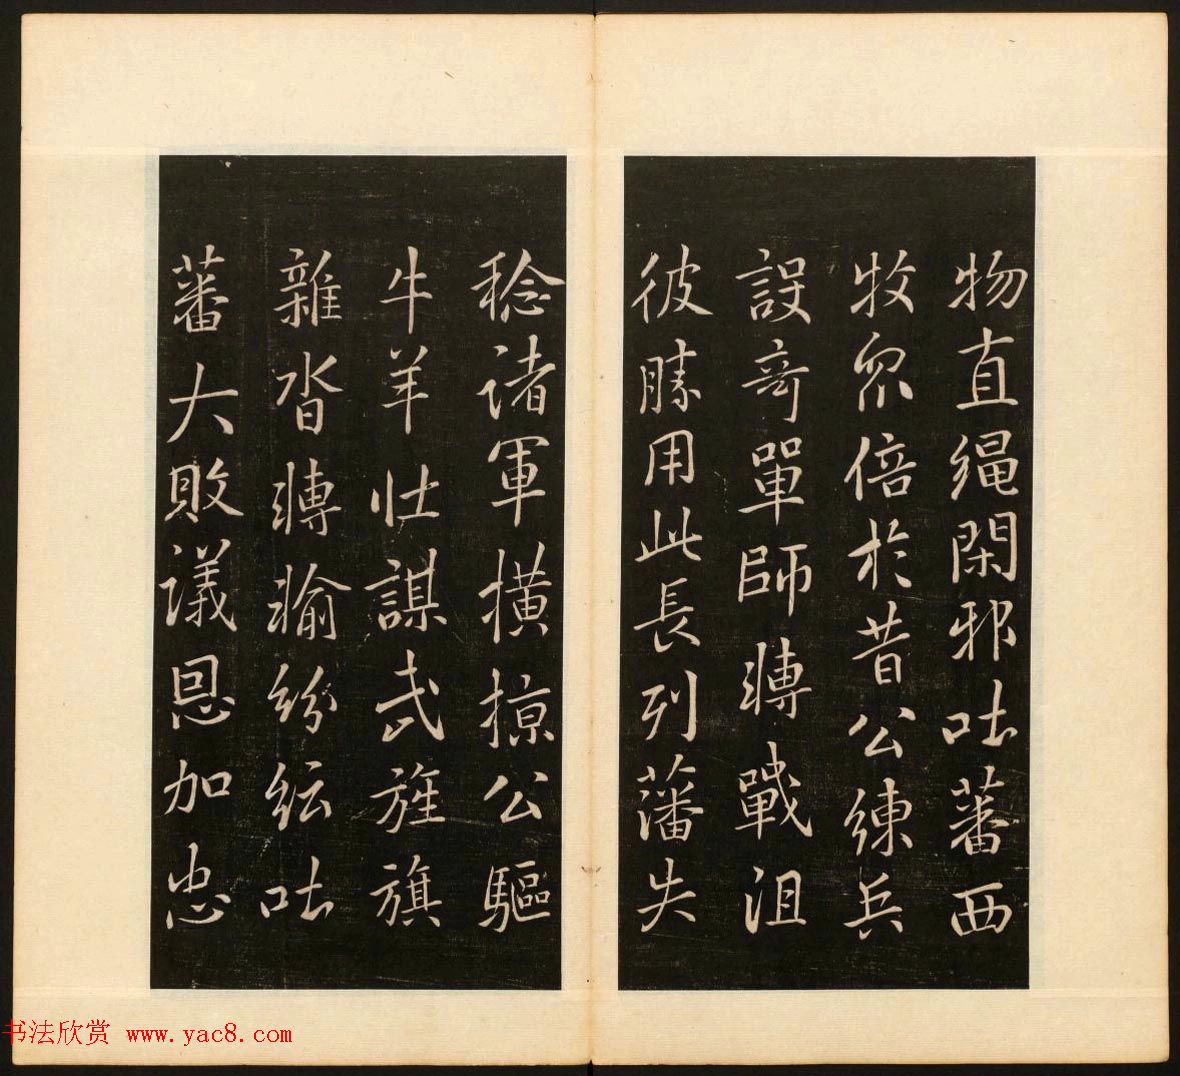 物直绳閑邪吐蕃西
牧众倍於昔公練兵
設奇單師轉戰沮
彼勝用此長列藩失
稔诸軍横掠公驅
牛羊壮謀武旌旗
雜沓轉輸紛紜吐
蕃大敗議恩加忠
书法欣赏 www.yac8.com